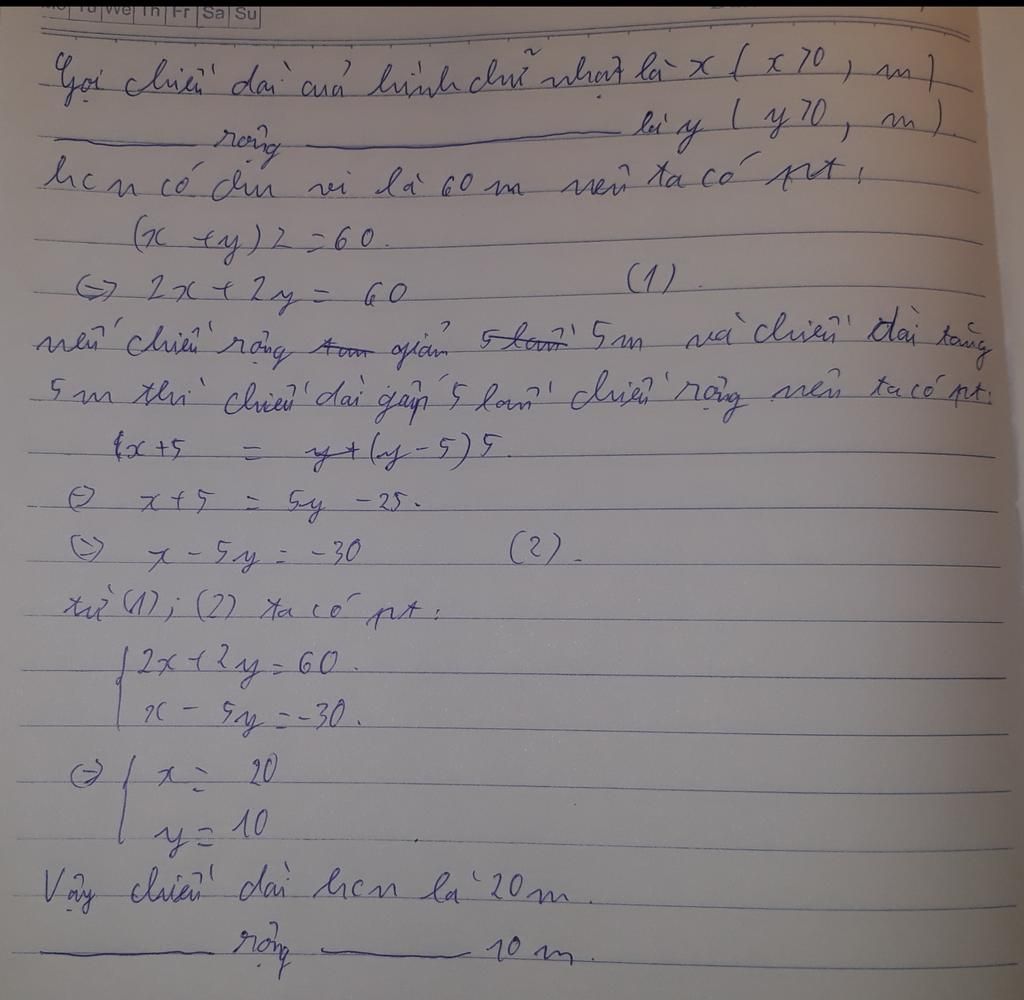 Mo Tu We Th Fr Sa Su
Gọi chiều dài của hình chữ nhật là x ( x>0, m)
rộng là y ( y>0, m).
hcn có chu vi là 60 m nên ta có pt:
(x +y) 2 = 60.
<=> 2x + 2y = 60 (1).
nếu chiều rộng giảm 5 lần 5m và chiều dài tăng
5 m thì chiều dài gấp 5 lần chiều rộng nên ta có pt:
x +5 = y + (y - 5) 5.
<=> x + 5 = 5y - 25.
<=> x - 5y = -30 (2).
từ (1); (2) ta có pt:
2x + 2y = 60.
x - 5y = -30.
<=> x = 20
y = 10
Vậy chiều dài hcn là 20 m.
rộng 10 m.